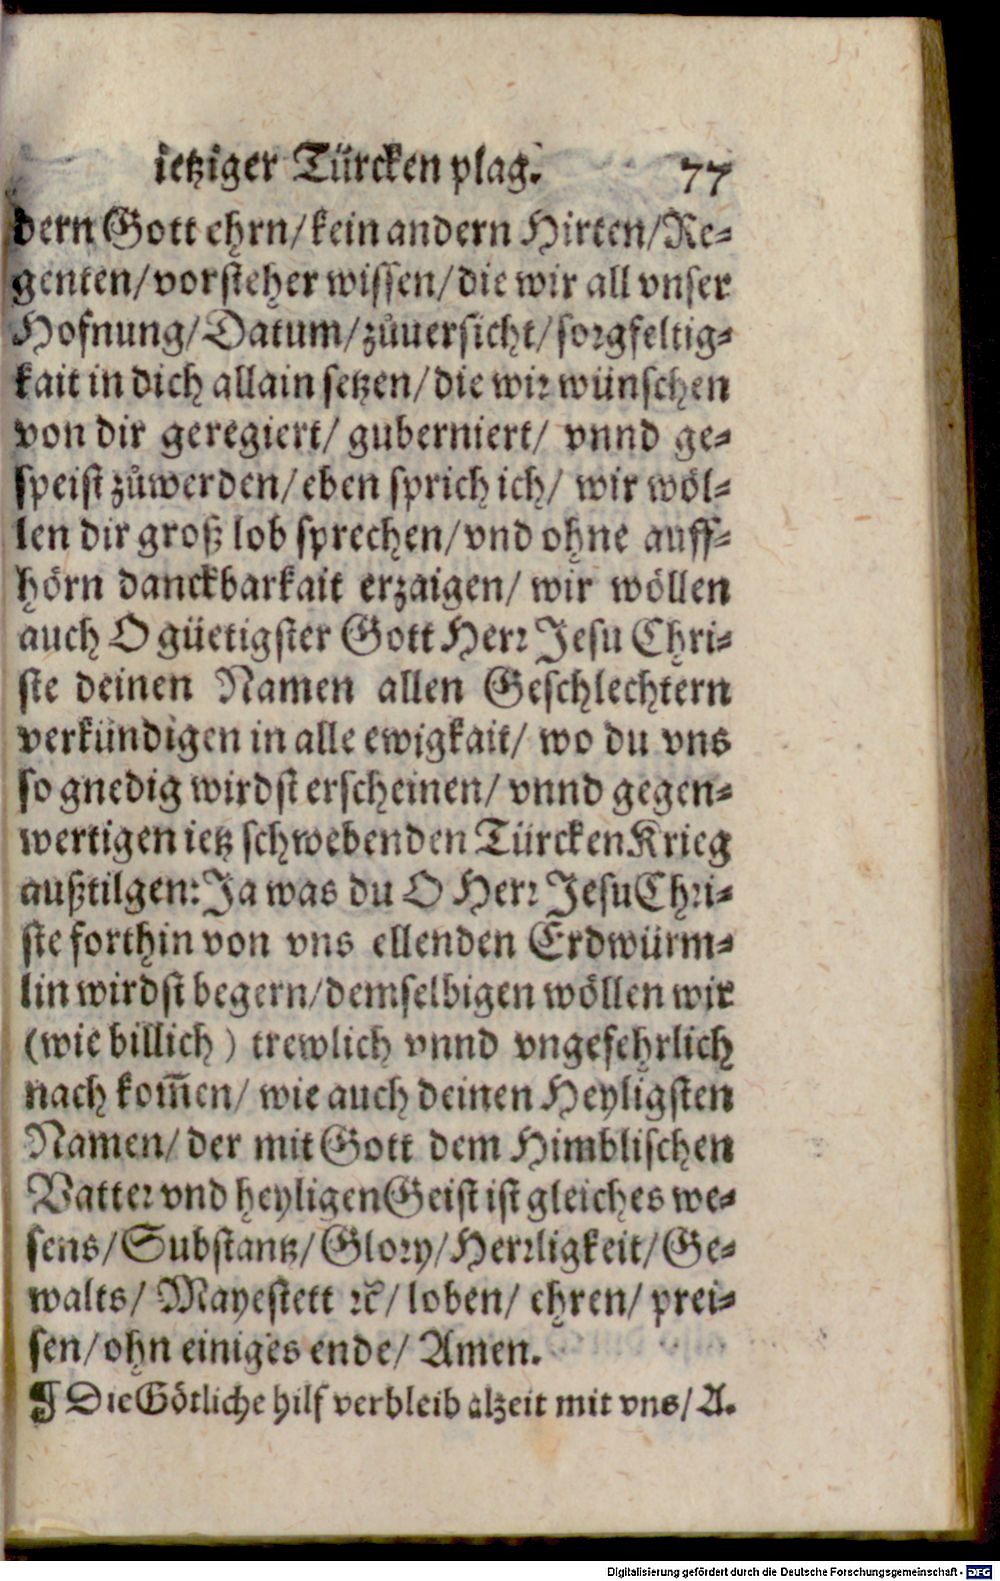 ietziger Türcken plag. 77
dern Gott ehrn/kein andern Hirten/Re⸗
genten/vorsteher wissen/die wir all vnser
Hofnung/Datum/zůuersicht/sorgfeltig⸗
kait in dich allain setzen/die wir wünschen
von dir geregiert/ guberniert/ vnnd ge⸗
speist zůwerden/eben sprich ich/ wir wöl⸗
len dir groß lob sprechen/vnd ohne auff⸗
hörn danckbarkait erzaigen/ wir wöllen
auch O güetigster Gott Herr Jesu Chri⸗
ste deinen Namen allen Geschlechtern
verkündigen in alle ewigkait/ wo du vns
so gnedig wirdst erscheinen/ vnnd gegen⸗
wertigen ietz schwebenden Türcken Krieg
außtilgen: Ja was du O Herr Jesu Chri⸗
ste forthin von vns ellenden Erdwürm⸗
lin wirdst begern/demselbigen wöllen wir
(wie billich) trewlich vnnd vngefehrlich
nach kom̃en/ wie auch deinen Heyligsten
Namen/ der mit Gott dem Himblischen
Vatter vnd heyligen Geist ist gleiches we⸗
sens/Substantz/Glory/Herrligkeit/Ge⸗
walts/ Mayestett ꝛc̃/ loben/ ehren/ prei⸗
sen/ohn einiges ende/ Amen.
¶ Die Götliche hilf verbleib alzeit mit vns/A.
Digitalisierung gefördert durch die Deutsche Forschungsgemeinschaft - DFG